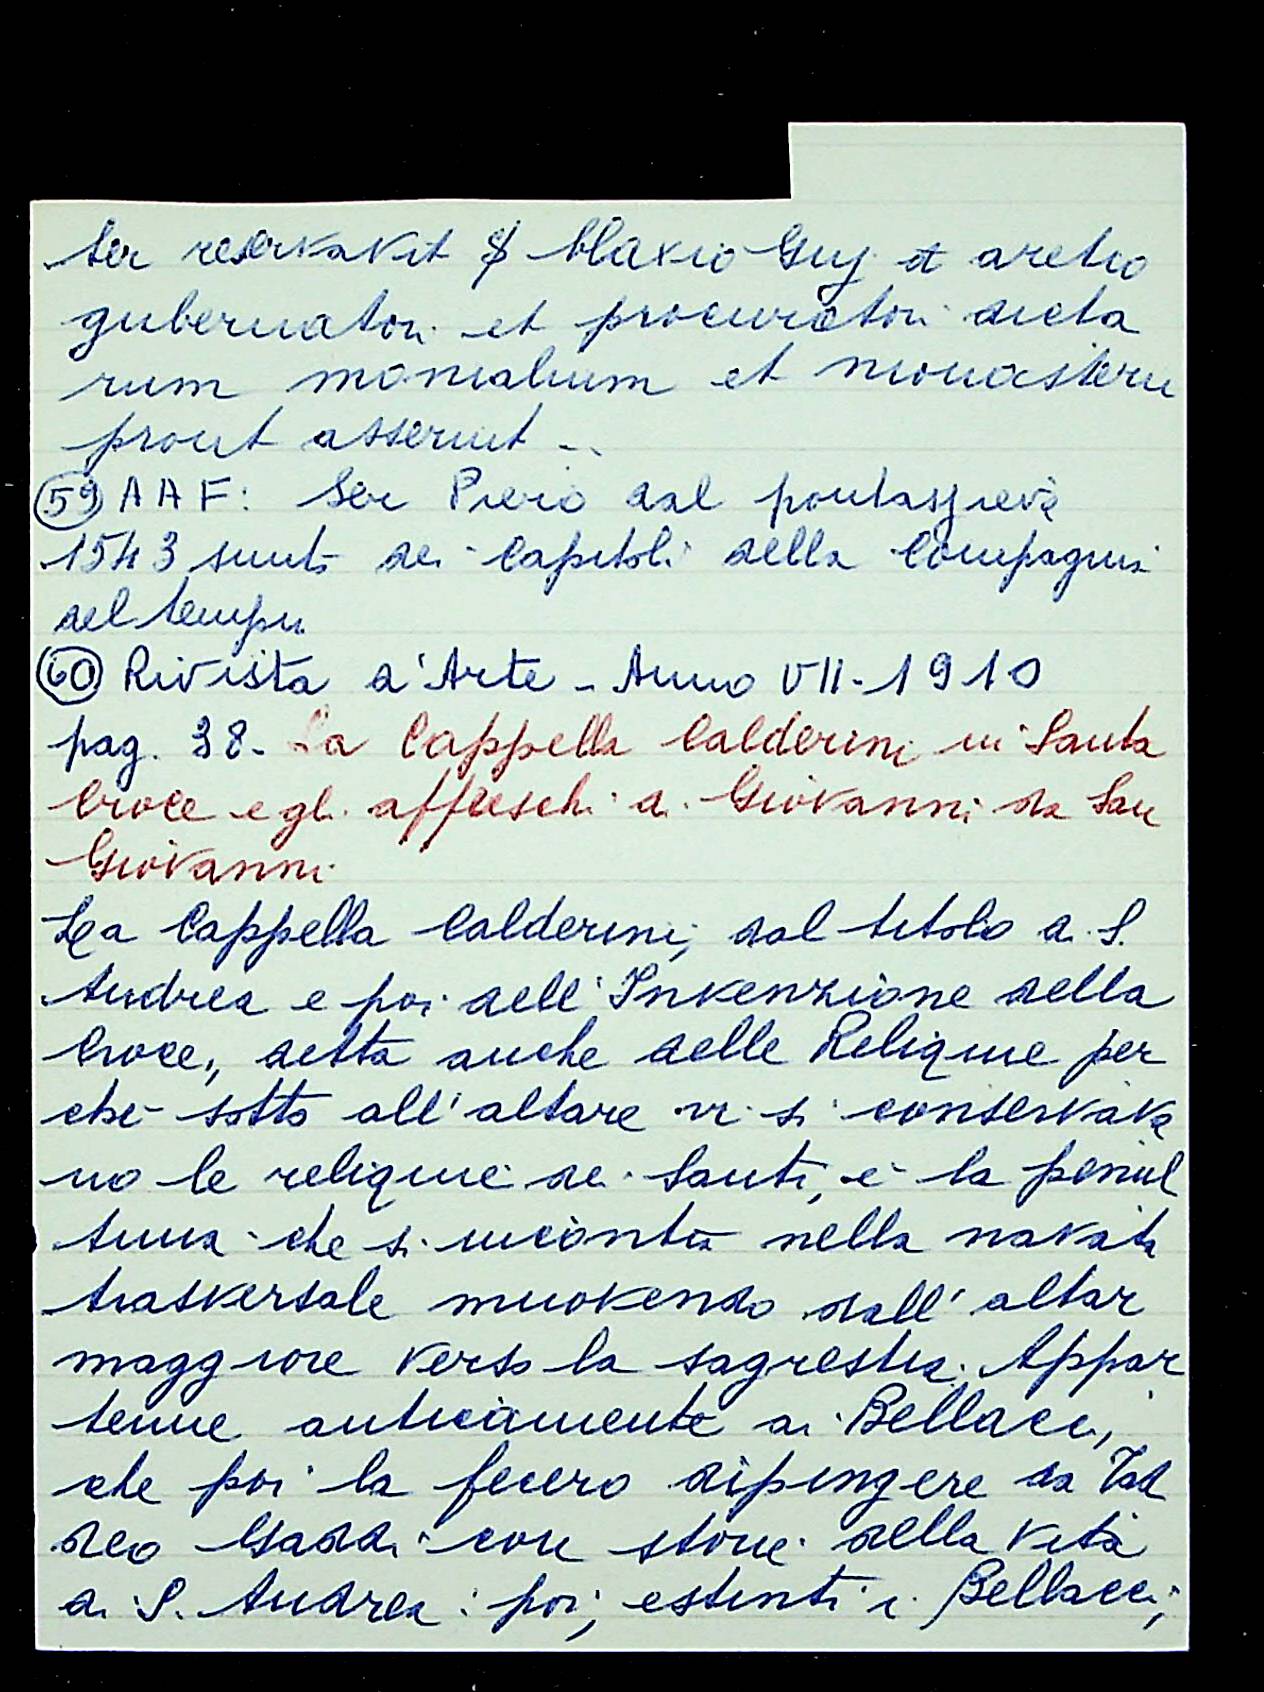 ter reservavit $ Blaxio Guij et aretio
gubernatori et procuratori dicta
rum monialium et monasterii
prout asseruit -
59 AAF: Ser Piero dal pontassieve
1543 sunto dei Capitoli della Compagnia
del tempio
60 Rivista d'Arte - Anno VII - 1910
pag. 38 - La Cappella Calderini in Santa
Croce e gli affreschi di Giovanni da San
Giovanni
La Cappella Calderini, dal titolo di S.
Andrea e poi dell'Invenzione della
Croce, detta anche delle Reliquie per
chè sotto all'altare vi si conservava
no le reliquie dei Santi, è la penul
tima che si incontra nella navata
trasversale muovendo dall'altar
maggiore verso la sagrestia. Appar
tenne anticamente ai Bellacci,
che poi la fecero dipingere da Tad
deo Gaddi con storie della vita
di S. Andrea: poi, estinti i Bellacci,